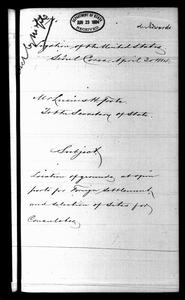 DEPARTMENT OF STATE
JUN 23 1884
RECEIVED
Legation of the United States
Seoul Corea. April 20 1884.
Mr Lucius H. Foote
To the Secretary of State.
Subject
Location of grounds at open
ports for Foreign Settlement
and selection of sites for
Consulates